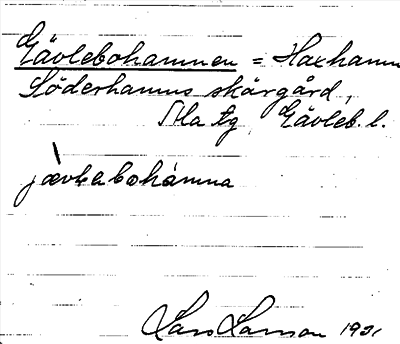 Gävlebohamnen = Haxhamn
Söderhamns skärgård,
Hla sg, Gävleb. l.
jævlabohàmna
Lars Larsson 1931